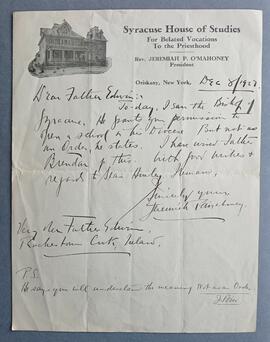 Syracuse House of Studies
For Belated Vocations
To the Priesthood
Rev. JEREMIAH P. O'MAHONEY
President
Oriskany, New York, Dec 8/1927
Dear Father Edwin:-
To-day, I saw the Bishop of
Syracuse. He grants you permission to
open a school in his Diocese. But not as
an Order, he states. I have wired Father
Brendan of this. With good wishes &
regards to
Sincerely yours
Jeremiah P. O'Mahoney.
Very Rev Father Edwin,
Cork, Ireland.
P.S.
He says you will understand the meaning Not as an Order.